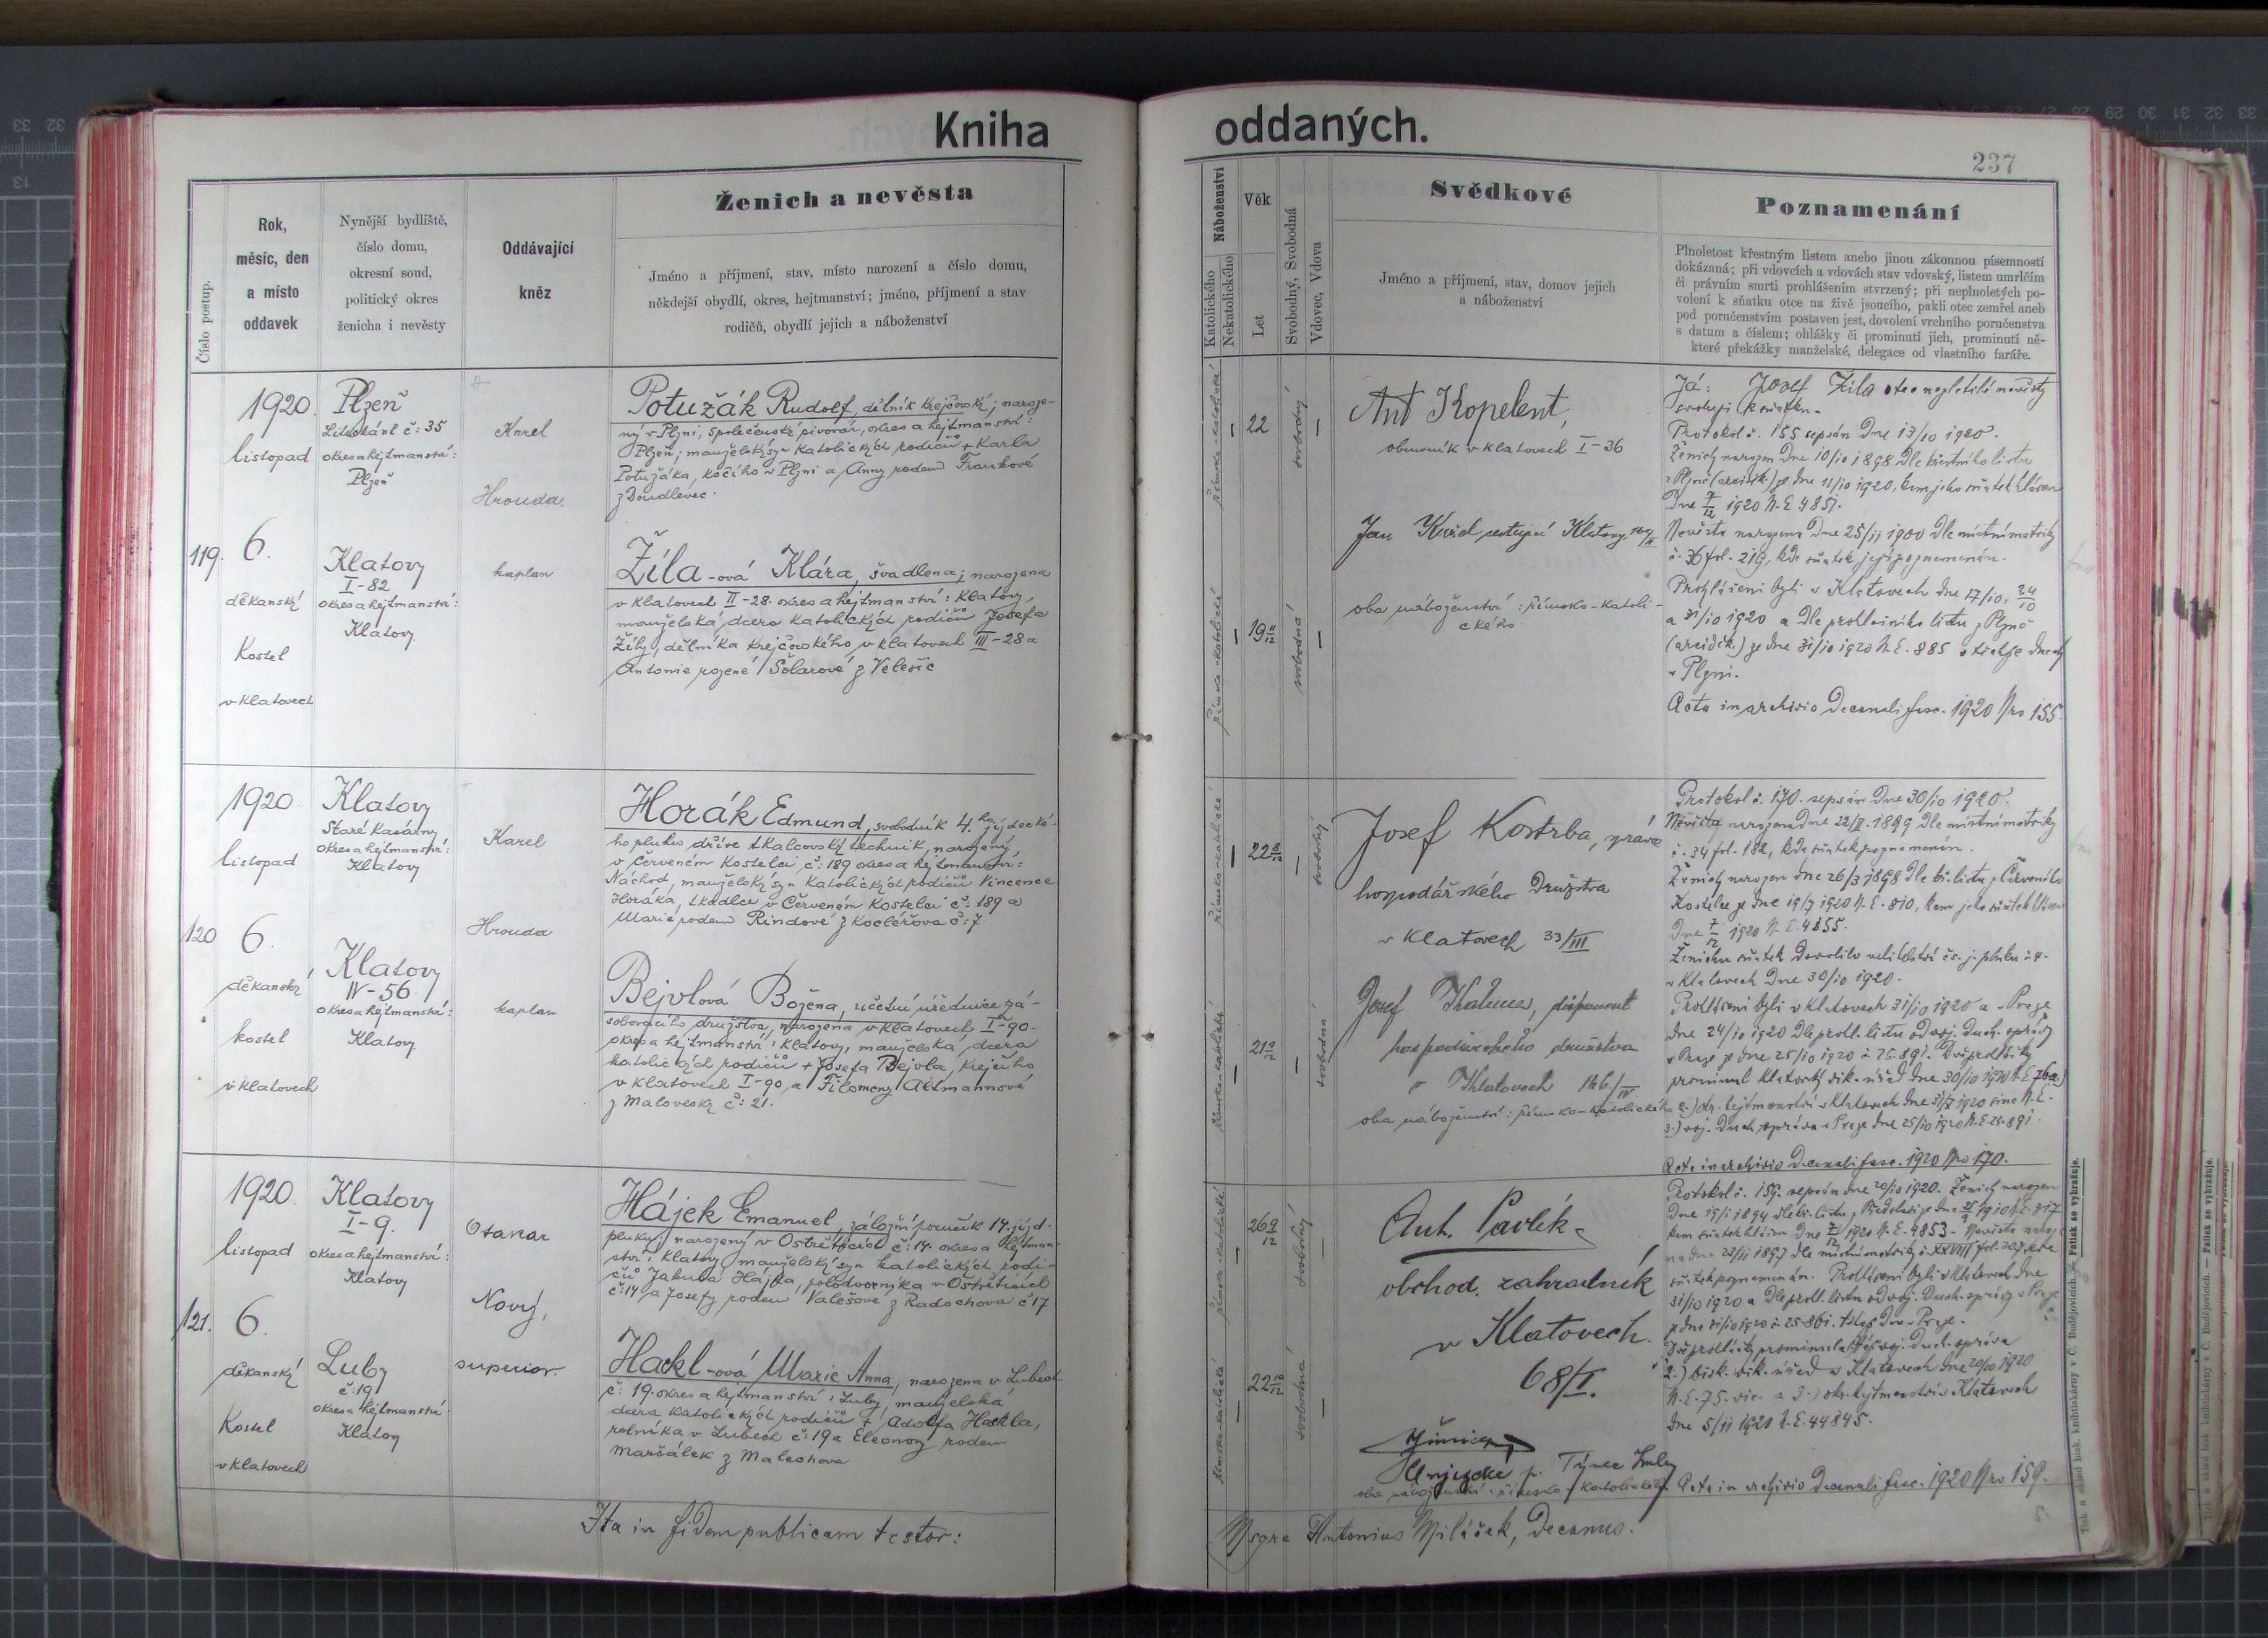 Kniha
oddaných.
237
Číslo postup.
Rok,
měsíc, den
a místo
oddavek
Nynější bydliště,
číslo domu,
okresní soud,
politický okres
ženicha i nevěsty
Oddávající
kněz
Ženich a nevěsta
Jméno a příjmení, stav, místo narození a číslo domu,
někdejší obydlí, okres, hejtmanství; jméno, příjmení a stav
rodičů, obydlí jejich a náboženství
Náboženství
Katolického
Nekatolického
Věk
Let
Svobodný, Svobodná
Vdovec, Vdova
Svědkové
Jméno a příjmení, stav, domov jejich
a náboženství
Poznamenání
Plnoletost křestným listem anebo jinou zákonnou písemností
dokázaná; při vdovcích a vdovách stav vdovský, listem umrlčím
či právním smrti prohlášením stvrzený; při neplnoletých po-
volení k sňatku otce na živě jsoucího, pakli otec zemřel aneb
pod poručenstvím postaven jest, dovolení vrchního poručenstva
s datum a číslem; ohlášky či prominutí jich, prominutí ně-
které překážky manželské, delegace od vlastního faráře.
119.
1920
listopad
6.
děkanský
Kostel
v Klatovech
Plzeň
č: 35
okres a hejtmanství:
Plzeň
Klatovy
I-82
okres a hejtmanství:
Klatovy
Karel
Hrouda.
kaplan
Potužák Rudolf, dělník krejčovský; naroze-
ný v Plzni, společenský pivovar, okres a hejtmanství:
Plzeň; manželský syn katolických rodičů + Karla
Potužáka, kočího v Plzni a Anny rodem Frankové
z Doudlevec.
Žíla-ová Klára, švadlena; narozena
v Klatovech II-28. okres a hejtmanství: Klatovy,
manželská dcera katolických rodičů Josefa
Žíly, dělníka krejčovského v Klatovech III-28 a
Antonie rozené Šolarové z Velešic
římsko-katolické
22
svobodný
římsko-katolické
19 11/12
svobodná
Ant Kopelent,
obuvník v Klatovech I-36
Jan
Klatovy
oba náboženství: římsko-katoli-
ckého
Já: Josef Žíla otec nezletilé nevěsty
svoluji k sňatku.
Protokol č. 155 sepsán dne 13/10 1920.
Ženich narozen dne 10/10 1898 dle křestního listu
z Plzně (arciděk.) ze dne 11/10 1920, kam jeho sňatek hlášen
Dne 7/12 1920 N.E. 4851.
Nevěsta narozena dne 25/11 1900 dle místní matriky
č. 36 fol. 219, kde sňatek její poznamenán.
Prohlášeni byli v Klatovech dne 17/10, 24/10
a 31/10 1920 a dle prohlásního listu z Plzně
(arciděk.) ze dne 31/10 1920 N.E. 885
v Plzni.
Acta in archivio decanali fasc. 1920 Nro 155.
120
1920
listopad
6.
děkanský
kostel
v Klatovech
Klatovy
Staré Kasárny
okres a hejtmanství:
Klatovy
Klatovy
IV-56
okres a hejtmanství:
Klatovy
Karel
Hrouda
kaplan
Horák Edmund, svobodník 4.ho jízdecké-
ho pluku dříve tkalcovský technik, narozený
v Červeném Kostelci č: 189 okres a hejtmanství:
Náchod, manželský syn katolických rodičů Vincence
Horáka, tkadlce v Červeném Kostelci č: 189 a
Marie rodem Rindové z Kocléřova č: 7
Bejvlová Božena, účetní úřednice zá-
sobovacího družstva, narozena v Klatovech I-90.
okres a hejtmanství: Klatovy, manželská dcera
katolických rodičů + Josefa Bejvla, krejčího
v Klatovech I-90, a Filomeny Altmannové
z Malovesky č: 21.
římsko-katolické
22 8/12
svobodný
římsko-katolické
21 9/12
svobodná
Josef Kostrba, správce
hospodářského Družstva
v Klatovech 33/III
Josef
hospodářského družstva
v Klatovech 146/IV
oba náboženství: římsko-katolického
Protokol č. 170. sepsán dne 30/10 1920.
Nevěsta narozena dne 22/II. 1899 dle místní matriky
č. 34 fol. 182, kde sňatek poznamenán.
Ženich narozen dne 26/3 1898 dle kř. listu z Červeného
Kostelce ze dne 19/7 1920 N.E. 810, kam jeho sňatek hlášen
Dne 7/12 1920 N.E. 4855.
Ženichu sňatek dovolilo velitelství čs. j. pluku č. 4.
v Klatovech dne 30/10 1920.
Prohlášeni byli v Klatovech 31/10 1920 a v Praze
dne 24/10 1920 dle prohl. listu od voj. duch. správy
v Praze ze dne 25/10 1920 č. 25.891. Dvě prohlášky
prominul klatovský vik. úřad dne 30/10 1920 N.E. 76 a.)
2.) okr. hejtmanství v Klatovech dne 1920 sine N.E.
3.) voj. duch. správa v Praze dne 25/10 1920 N.E. 25.891.
Acta in archivio decanali fasc. 1920 Nro 170.
121.
1920
listopad
6.
děkanský
Kostel
v Klatovech
Klatovy
I-9.
okres a hejtmanství:
Klatovy
Luby
č: 19
okres a hejtmanství
Klatovy
Otakar
Nový,
superior.
Hájek Emanuel, záložní poručík 14. jízd.
pluku, narozený v Ostřeticích č: 14. okres a hejtman-
ství: Klatovy, manželský syn katolických rodi-
čů Jakuba Hájka, polodvorníka v Ostřeticích
č: 14 a Josefy rodem Valešové z Radochova č 17
Hackl-ová Marie Anna, narozena v Lubech
č: 19. okres a hejtmanství: Luby, manželská
dcera katolických rodičů + Adolfa Hackla,
rolníka v Lubech č: 19 a Eleonory rodem
Maršálek z Malechova
římsko-katolické
26 9/12
svobodný
římsko-katolické
22 10/12
svobodná
Ant. Pavlík
obchod. zahradník
v Klatovech.
68/I.
p. Týnec
oba náboženství: římsko-katolického
Protokol č. 159. sepsán dne 20/10 1920. Ženich narozen
Dne 19/1 1894 dle kř. listu z
kam sňatek hlášen dne 7/12 1920 N.E. 4853. Nevěsta naroze-
na dne 23/11 1897 dle místní matriky č. XXVIII fol. 207, kde
sňatek poznamenán. Prohlášeni byli v Klatovech dne
31/10 1920 a dle prohl. listu od voj. duch. správy v Praze
Dvě prohlášky prominula voj. duch. správa
2.) bisk. vik. úřad v Klatovech dne 20/10 1920
N.E. 75. vic. a 3.) okr. hejtmanství v Klatovech
dne 5/11 1920 N.E. 44845.
Acta in archivio decanali fasc. 1920 Nro 159.
Ita in fidem publicam testor:
Msgre Antonius Miláček, Decanus.
Tisk a sklad bisk. knihtiskárny v Č. Budějovicích. — Patisk se vyhražuje.